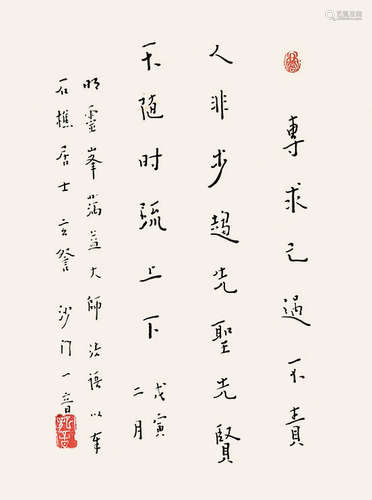 專求己過不責
人非步趨先聖先賢
不随时流上下
戊寅
二月
明靈峯蕅益大師法語以奉
石樵居士玄詧 沙门一音